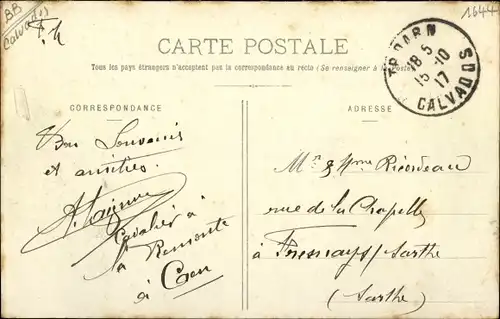 BB
Calvados
1644
CARTE POSTALE
Tous les pays étrangers n'acceptent pas la correspondance au recto (Se renseigner à la Poste)
TROARN
18 5
15-10
17
CALVADOS
CORRESPONDANCE
ADRESSE
Bon Souvenir
et amitiés.
Cavalier à
la Remonte
à Caen
Mr & Mme Riordeau
rue de la Chapelle
à Fresnay s/ Sarthe
(Sarthe)